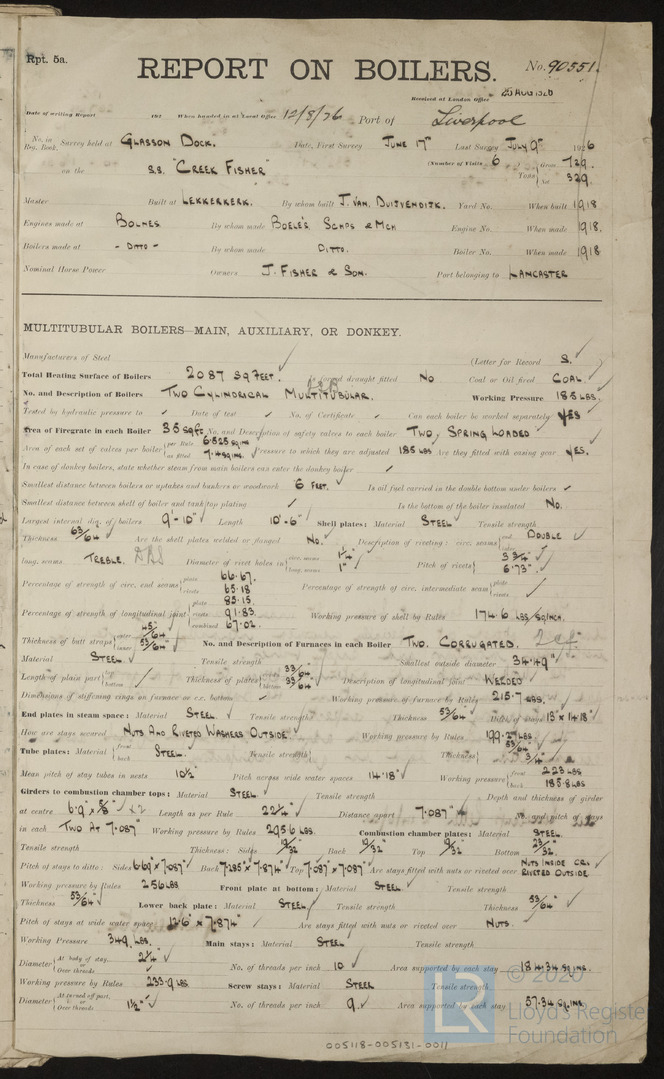 Rpt. 5a.
REPORT ON BOILERS.
No. 90551.
Received at London Office 25 AUG 1926
Date of writing Report 192 When handed in at Local Office 12/8/26 Port of Liverpool
No. in Reg. Book. Survey held at GLASSON DOCK. Date, First Survey JUNE 17th Last Survey JULY 9th 1926
on the S.S. "CREEK FISHER" (Number of Visits 6 Tons Gross 729. Net 329.
Master Built at LEKKERKERK. By whom built J. VAN. DUIJVENDIJK. Yard No. When built 1918
Engines made at BOLNES. By whom made BOELE'S SCHPS & MCH Engine No. When made 1918.
Boilers made at - DITTO - By whom made DITTO. Boiler No. When made 1918
Nominal Horse Power Owners J. FISHER & SON. Port belonging to LANCASTER
MULTITUBULAR BOILERS—MAIN, AUXILIARY, OR DONKEY.
Manufacturers of Steel (Letter for Record S.
Total Heating Surface of Boilers 2087 SQ FEET. Is forced draught fitted NO Coal or Oil fired COAL.
No. and Description of Boilers TWO CYLINDRICAL MULTITUBULAR. Working Pressure 185 LBS.
Tested by hydraulic pressure to Date of test No. of Certificate Can each boiler be worked separately YES
Area of Firegrate in each Boiler 35 sq ft. No. and Description of safety valves to each boiler TWO, SPRING LOADED
Area of each set of valves per boiler per Rule 6.525 sq in as fitted 7.4 sq ins. Pressure to which they are adjusted 185 LBS Are they fitted with easing gear YES.
In case of donkey boilers, state whether steam from main boilers can enter the donkey boiler
Smallest distance between boilers or uptakes and bunkers or woodwork 6 FEET. Is oil fuel carried in the double bottom under boilers
Smallest distance between shell of boiler and tank top plating Is the bottom of the boiler insulated NO.
Largest internal dia. of boilers 9'-10" Length 10'-6" Shell plates: Material STEEL Tensile strength
Thickness 63/64" Are the shell plates welded or flanged NO. Description of riveting: circ. seams end DOUBLE
long. seams TREBLE. DBS Diameter of rivet holes in circ. seams 1 1/4" long. seams 1" Pitch of rivets 3 3/4" 6.73"
Percentage of strength of circ. end seams plate 66.67. rivets 65.18 Percentage of strength of circ. intermediate seam plate rivets
Percentage of strength of longitudinal joint plate 85.15 rivets 91.83. combined 87.02. Working pressure of shell by Rules 174.6 LBS/SQ INCH.
Thickness of butt straps outer 45/64" inner 53/64" No. and Description of Furnaces in each Boiler TWO. CORRUGATED. 2 cf.
Material STEEL. Tensile strength Smallest outside diameter 34.49"
Length of plain part top bottom Thickness of plates crown 33/64" bottom 33/64" Description of longitudinal joint WELDED
Dimensions of stiffening rings on furnace or c.c. bottom Working pressure of furnace by Rules 215.7 LBS.
End plates in steam space: Material STEEL. Tensile strength Thickness 53/64" Pitch of stays 13" x 14.18"
How are stays secured NUTS AND RIVETED WASHERS OUTSIDE Working pressure by Rules 199.2 LBS
Tube plates: Material front back STEEL. Tensile strength Thickness 53/64" 3/4"
Mean pitch of stay tubes in nests 10 1/2 Pitch across wide water spaces 14.18" Working pressure front 223 LBS back 185.8 LBS
Girders to combustion chamber tops: Material STEEL. Tensile strength Depth and thickness of girder
at centre 6.9" x 5/8" x2 Length as per Rule 22 1/4" Distance apart 7.087" No. and pitch of stays
in each TWO AT 7.087" Working pressure by Rules 295.6 LBS. Combustion chamber plates: Material STEEL.
Tensile strength Thickness: Sides 19/32" Back 19/32" Top 19/32" Bottom 23/32.
Pitch of stays to ditto: Sides 6.69" x 7.087" Back 7.285" x 7.874" Top 7.087" x 7.087" Are stays fitted with nuts or riveted over NUTS INSIDE RIVETED OUTSIDE
Working pressure by Rules 256 LBS Front plate at bottom: Material STEEL. Tensile strength
Thickness 53/64" Lower back plate: Material STEEL Tensile strength Thickness 53/64"
Pitch of stays at wide water space 12.6" x 7.874" Are stays fitted with nuts or riveted over NUTS.
Working Pressure 349 LBS. Main stays: Material STEEL Tensile strength
Diameter At body of stay, or Over threads 2 1/4" No. of threads per inch 10 Area supported by each stay 184.34 SQ INS.
Working pressure by Rules 233.9 LBS Screw stays: Material STEEL Tensile strength
Diameter At turned off part, or Over threads 1 1/2" No. of threads per inch 9. Area supported by each stay 57.34 SQ INS.
© 2020
LR
Lloyd's Register
Foundation
005118-005131-0011